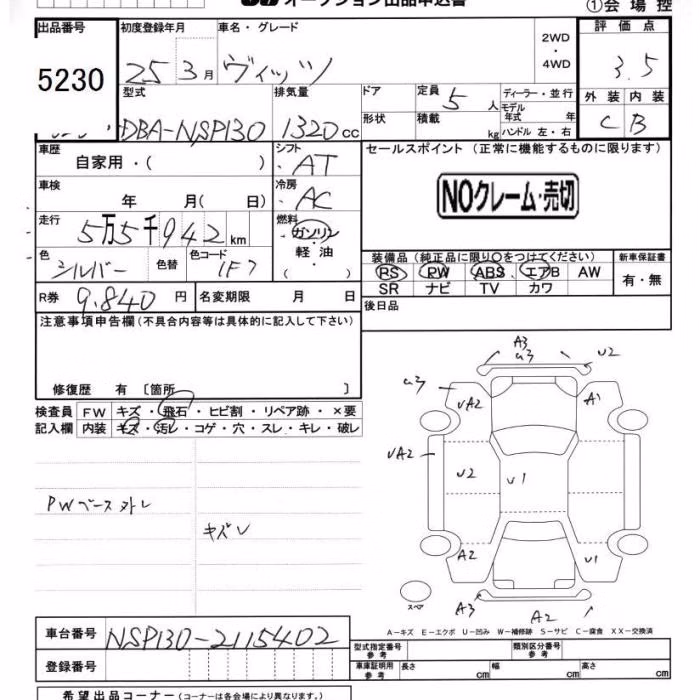 オークション出品申込書
①会場控
出品番号
5230
初度登録年月
25 3月
車名・グレード
ヴィッツ
2WD
・
4WD
評価点
3.5
型式
DBA-NSP130
排気量
1320cc
ドア
形状
定員 5人
積載 kg
ディーラー・並行
モデル年式 年
ハンドル 左・右
外装 内装
C B
車歴
自家用・( )
シフト
AT
セールスポイント (正常に機能するものに限ります)
NOクレーム・売切
車検
年 月( 日)
冷房
AC
走行
5万5千942km
燃料
ガソリン
軽油
( )
色
シルバー
色替
色コード
1F7
装備品 (純正品に限り○をつけてください)
PS PW ABS エアB AW
SR ナビ TV カワ
新車保証書
有・無
R券 9.840円
名変期限 月 日
後日品
注意事項申告欄 (不具合内容等は具体的に記入して下さい)
修復歴 有 〔箇所 〕
検査員
記入欄
FW キズ・飛石・ヒビ割・リペア跡・×要
内装 キズ・汚レ・コゲ・穴・スレ・キレ・破レ
PWベース外レ
キズレ
A3
a3
U2
a3
UA2
A1
UA2
U2
U1
A2
U1
A3
A2
スペア
A-キズ E-エクボ U-凹み W-補修跡 S-サビ C-腐食 XX-交換済
車台番号
NSP130-2115402
登録番号
型式指定番号
参考
類別区分番号
参考
車庫証明用
参考
長さ cm
幅 cm
高さ cm
希望出品コーナー (コーナーは各会場により異なります。)